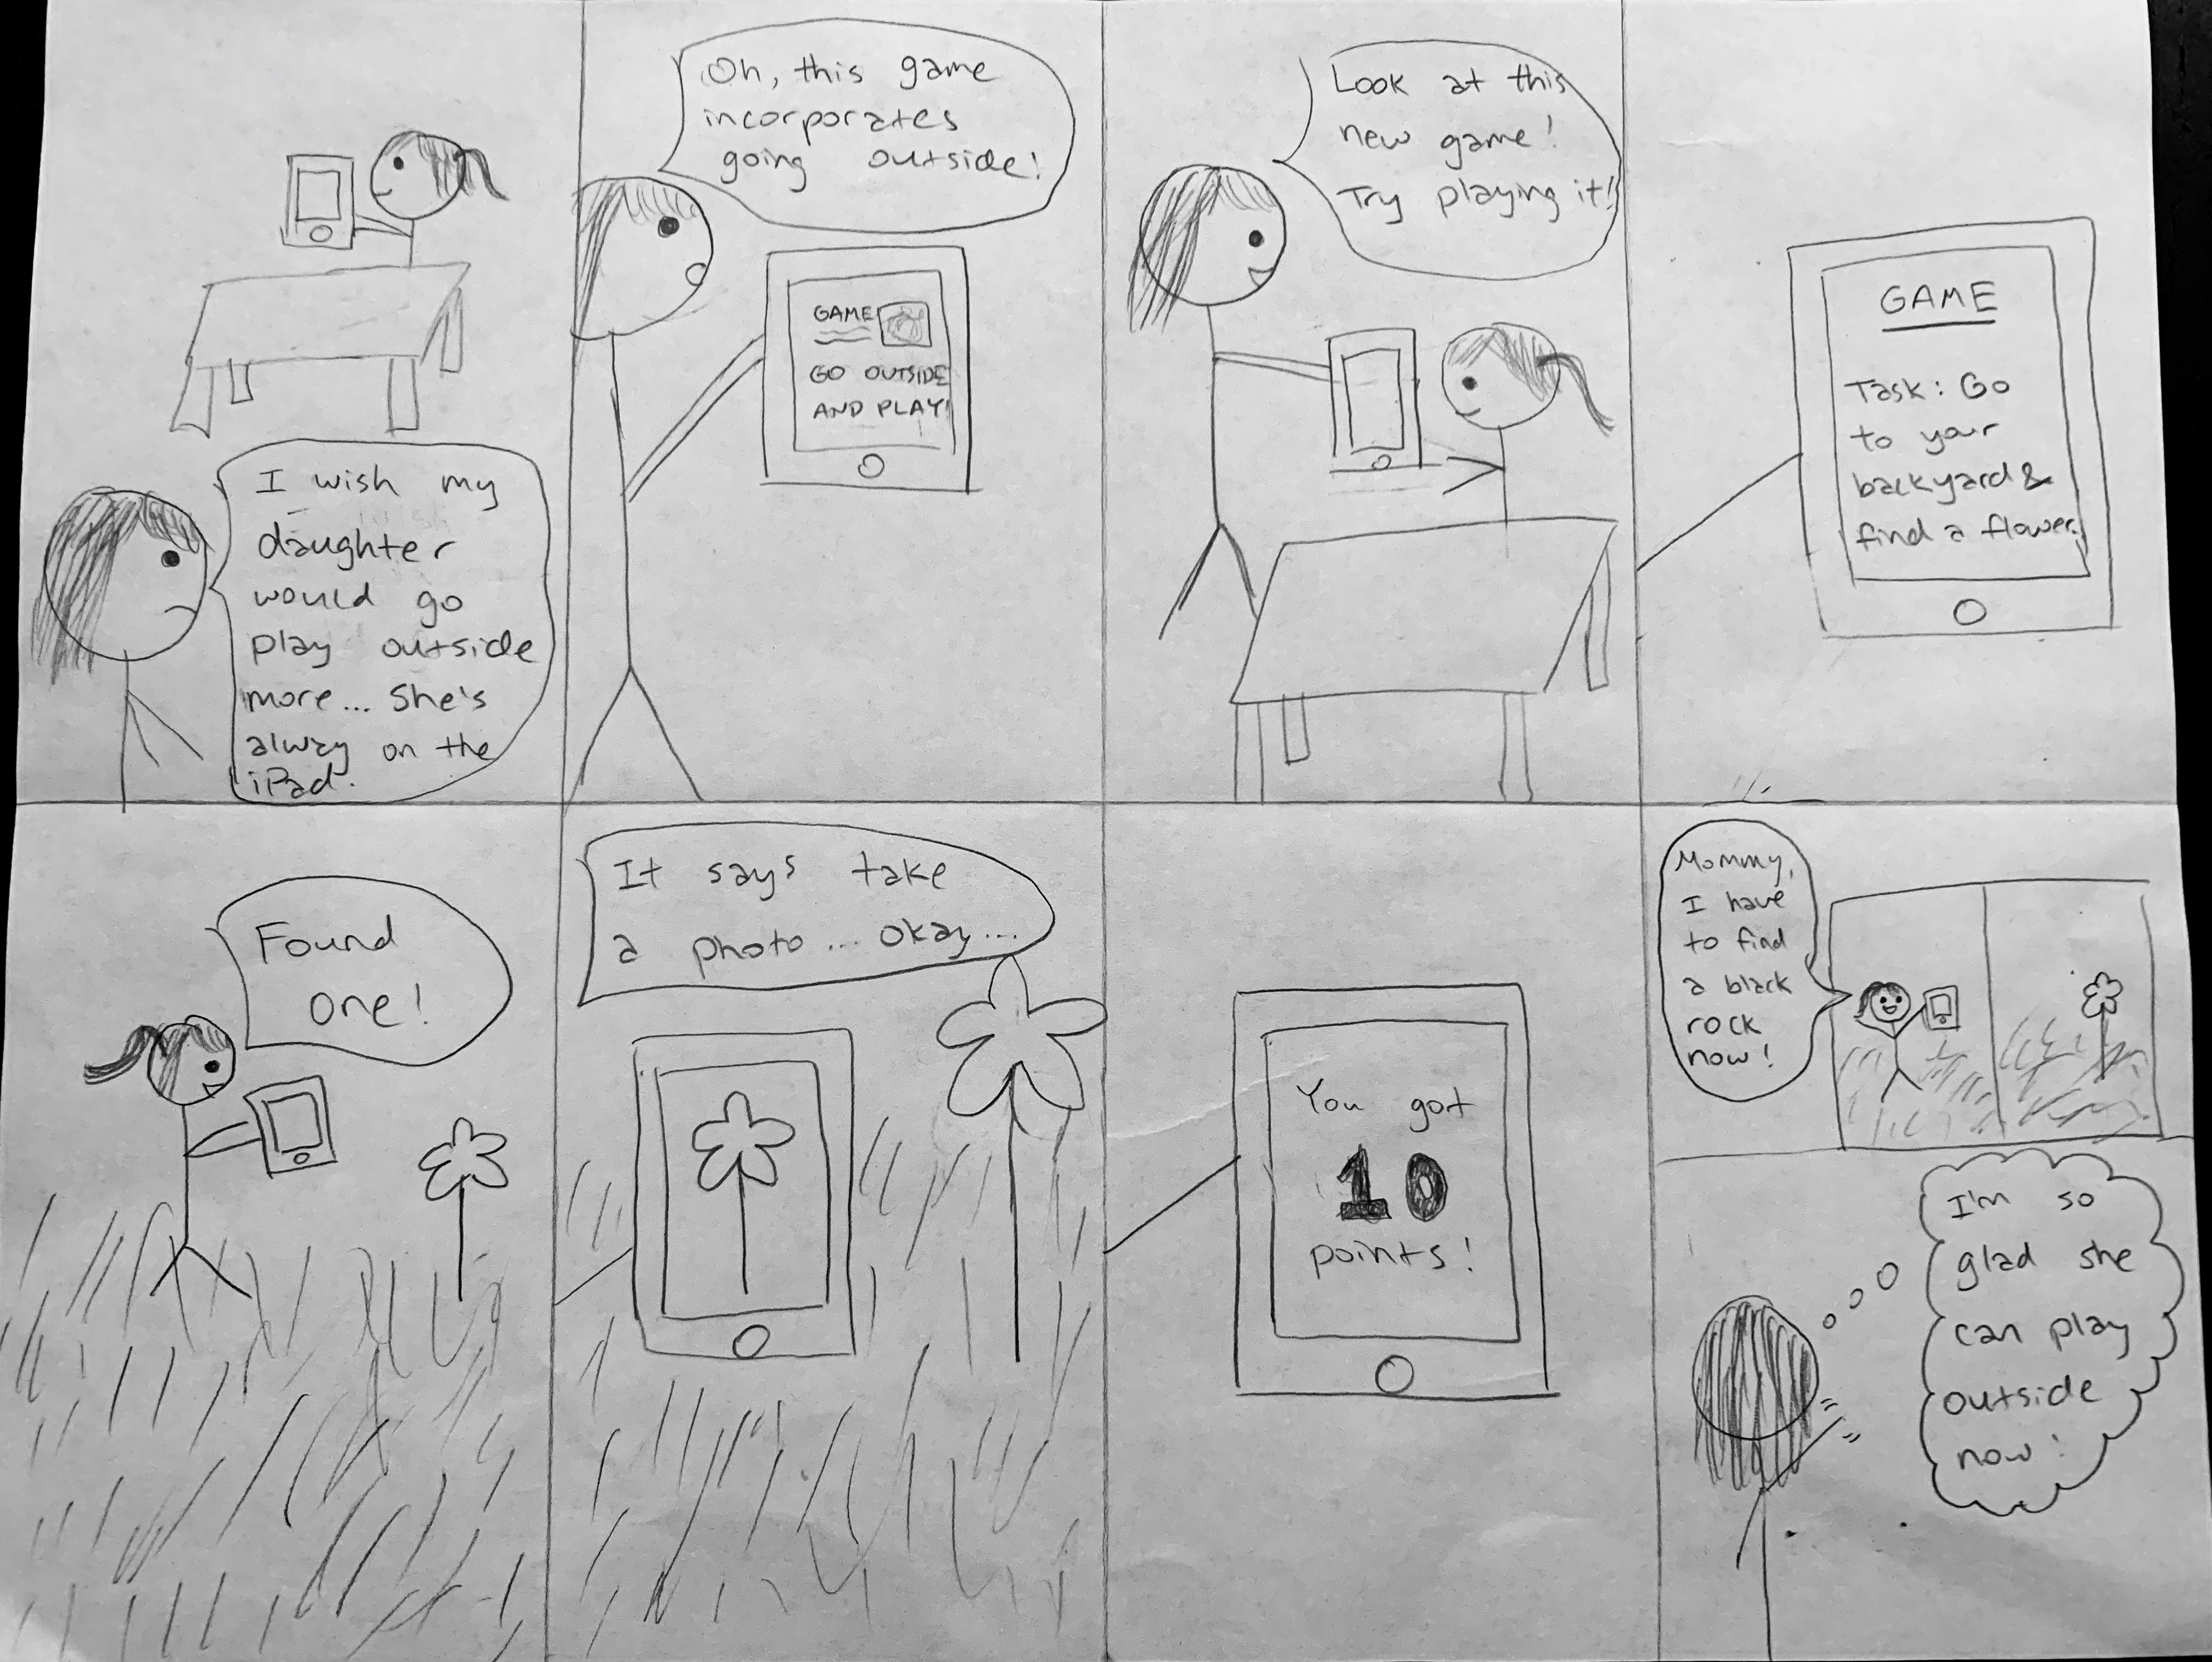 I wish my
daughter
would go
play outside
more... She's
alway on the
iPad.
Oh, this game
incorporates
going outside!
GAME
GO OUTSIDE
AND PLAY!
Look at this
new game!
Try playing it!
GAME
Task: Go
to your
backyard &
find a flower.
Found
one!
It says take
a photo... okay...
You got
10
points!
Mommy,
I have
to find
a black
rock
now!
I'm so
glad she
can play
outside
now!